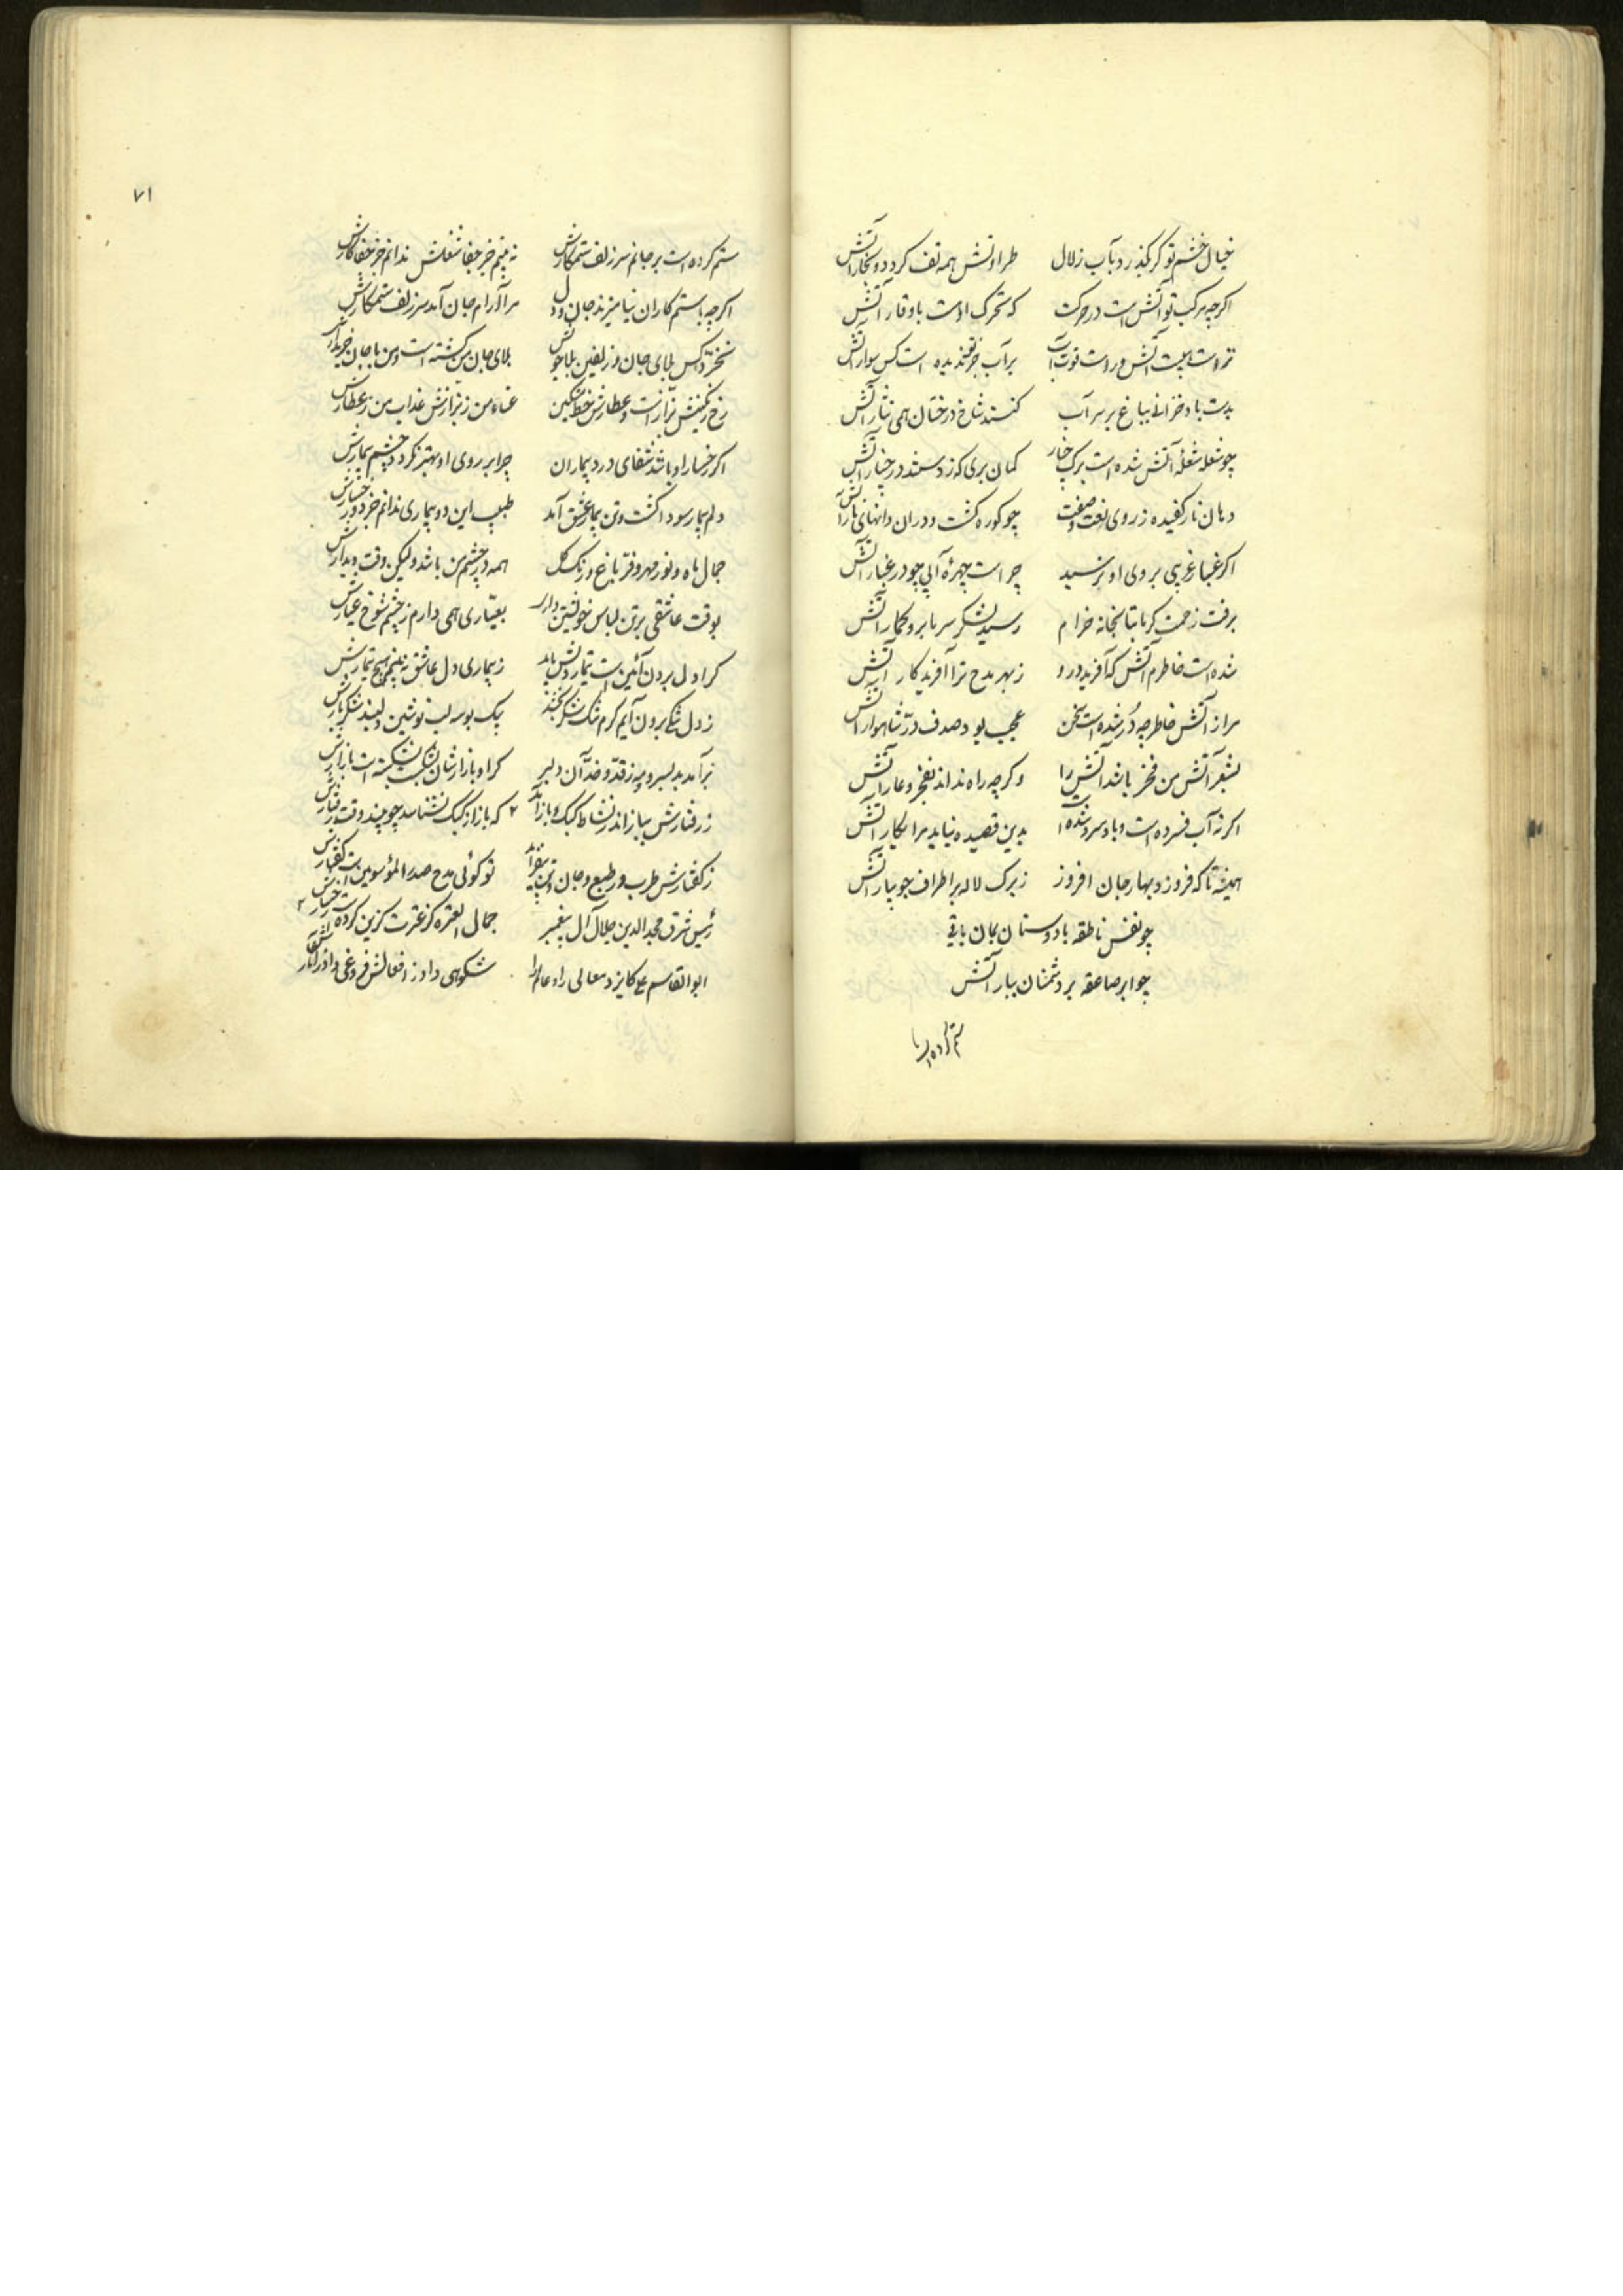 خیال خشم تو گر بگذرد بآب زلال طراوتش همه تف گردد و بخار آتش
اگرچه مرکب تو آتش است در حرکت که تحرک اوست با وقار آتش
تراست هیبت آتش وراست قوت آب بر آب جز تو ندیده است کس سوار آتش
بدست باد خزانی بباغ بر سر آب کنند شاخ درختان همی نثار آتش
چو شعله شعلهٔ آتش شده است برگ چنار گمان بری که زدستند در چنار آتش
دهان نار کفیده ز روی نعت و صفت چو کوره گشت و در آن دانهای نار آتش
اگر غبار غریبی بروی او نرسید چراست چهرهٔ آبی چو در غبار آتش
برفت زحمت گرما بتابخانه خرام رسید لشکر سرما برو گمار آتش
شده است خاطرم آتش که آفرید درو ز بهر مدح ترا آفریدگار آتش
مرا ز آتش خاطر چه در شده است سخن عجب بود صدف در شاهوار آتش
بشعر آتش من فخر باشد آتش را وگرچه راه نداند بفخر و عار آتش
اگر نه آب فسرده است و باد سرد شده بدین قصیده نیاید مرا بکار آتش
همیشه تا که فروزد بهار جان افروز ز برگ لاله بر اطراف جویبار آتش
چو نفس ناطقه با دوستان بمان باقی
چو ابر صاعقه بر دشمنان ببار آتش
ستم کرده است بر
۷۱
ستم کرده است بر جانم سر زلف ستمکارش نه بینم جز جفا شغلش ندانم جز جفا کارش
اگرچه با ستمکاران نیامیزند جان و دل مرا آرام جان آمد سر زلف ستمکارش
نخرد کس بلای جان وز زلفین بلاجویش بلای جان من گشته است و من با جان خریدارش
رخ رنگینش بزاز است و عطارش خط مشکین عناء من ز بزازش عذاب من ز عطارش
اگر رخسار او باشد شفای درد بیماران چرا بر روی او بهتر نگردد چشم بیمارش
دلم بیمار سودا گشت و تن بیمار عشق آمد طبیب این دو بیماری ندانم جز دو رخسارش
جمال ماه و نور مهر و فر باغ و رنگ گل همه در چشم من باشد ولیکن وقت دیدارش
بوقت عاشقی بر تن لباس خویشتن دارد بعیاری همی دارم ز چشم شوخ عیارش
کرا دل بردن آئین است تیمار دلش باید ز بیماری دل عاشق نه بینم هیچ تیمارش
ز دل تنگی برون آیم گرم تنگ شکر بخشد بیک بوسه لب نوشین و لبند شکر بارش
برآمد بد بسرو و مه ز قد و خد آن دلبر کرا و بازارشان بشکست نشکسته است بازارش
ز رفتارش بباز اندر نشاط کبک و باز آید که باز از کبک نشناسد چو بیند وقت رفتارش
ز گفتارش طرب در طبع و جان و تن بیفزاید تو گوئی مدح صدر المؤسوین است گفتارش
رئیس شرق مجد الدین جلال آل پیغمبر جمال العتره کز عترت گزین کرده است جبارش
ابوالقاسم علی کایزد معالی راه عالم را شکوهی داد ز افعالش فروغی داد ز آثارش